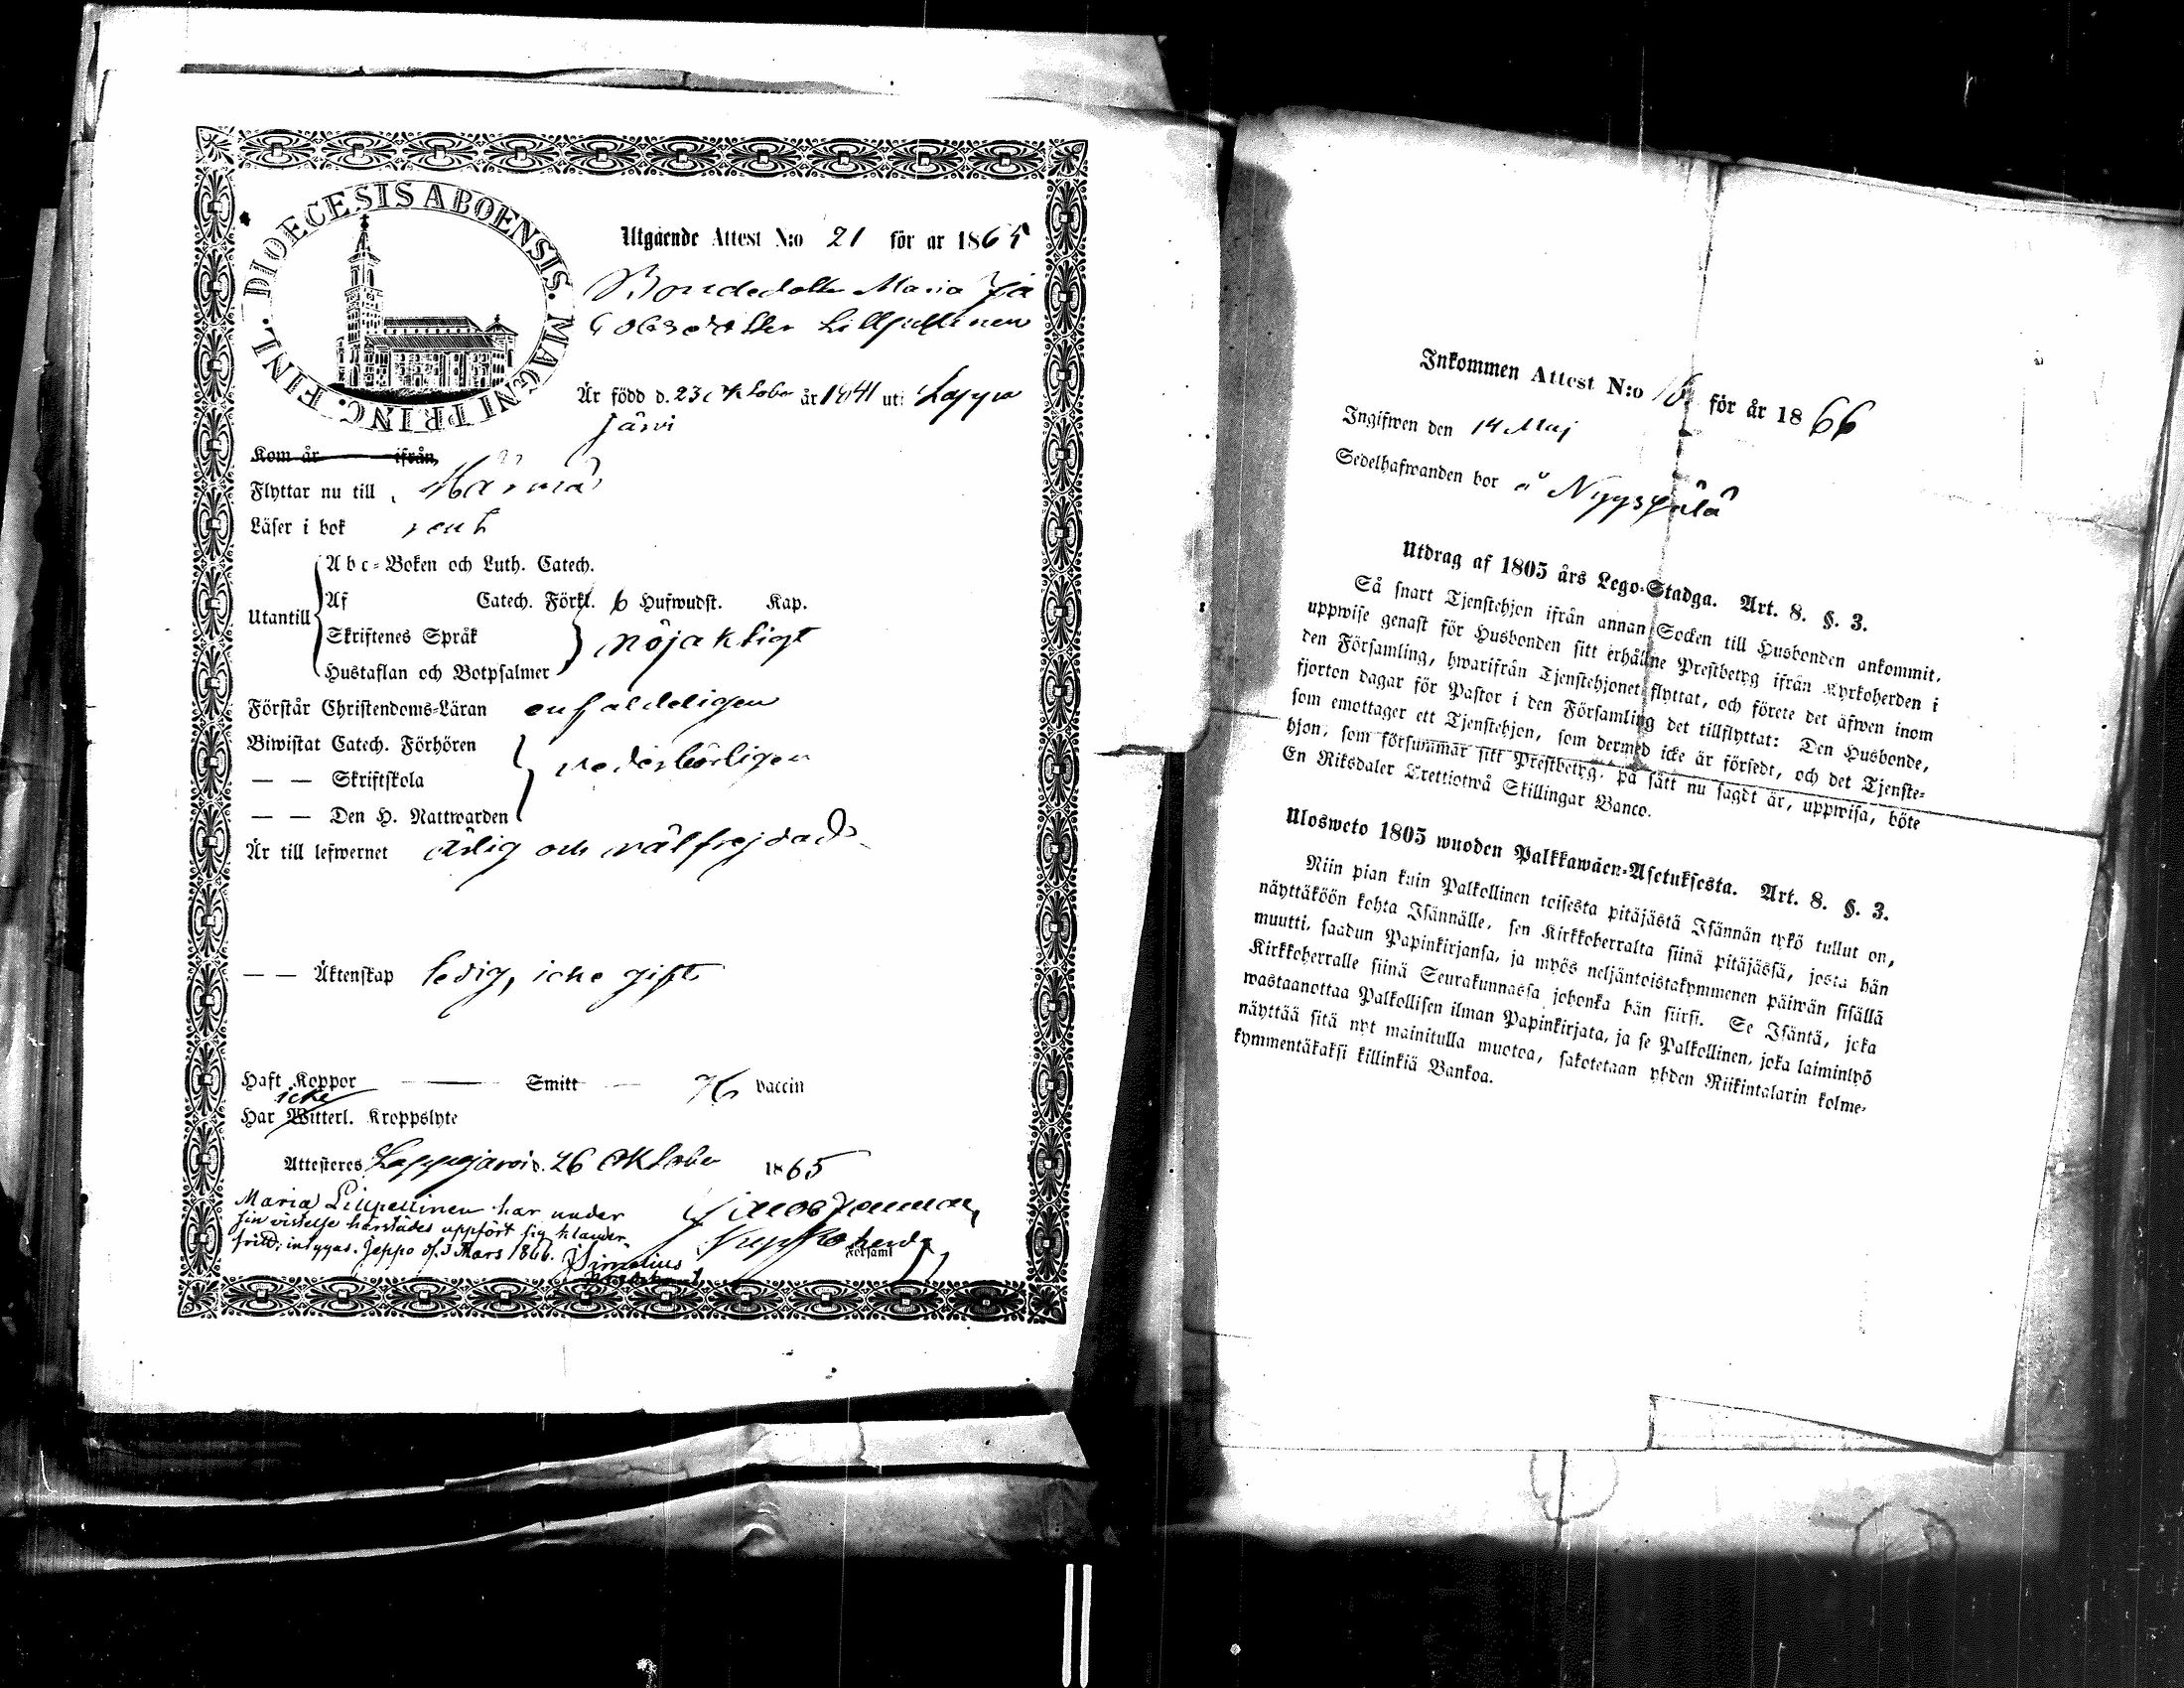 DIOECESIS ABOENSIS. MAGNI PRINC. FINL.
Utgående Attest N:o 21 för år 1865
Bondedotter Maria Ja
cobsdotter Lillpellinen
Är född d. 23 October år 1841 uti Lappa
järvi
Kom år ifrån
Flyttar nu till Härmä
Läser i bok rent
Utantill
Abc-Boken och Luth. Catech.
Af Catech. Förkl. 6 Hufwudst. Kap.
Skriftenes Språk
nöjaktigt
Hustaflan och Botpsalmer
Förstår Christendoms-Läran enfaldeligen
Biwistat Catech. Förhören
— — Skriftskola
vederbörligen
— — Den H. Nattwarden
Är till lefwernet ärlig och välfrejdad
— — Äktenskap ledig, icke gift
Haft Koppor Smitt vaccin
icke
Har Witterl. Kroppslyte
Attesteras Lappajärvi d. 26 Oktober 1865
Maria Lillpellinen har under
sin vistelse härstädes uppfört sig klander-
fritt; intygas. Jeppo d. 3 Mars 1866.
Kyrkoherde
Församl
Inkommen Attest N:o för år 1866
Ingifwen den 14 Maj
Sedelhafwanden bor å
Utdrag af 1805 års Lego-Stadga. Art. 8. §. 3.
Så snart Tjenstehjon ifrån annan Socken till Husbonden ankommit,
uppwise genast för Husbonden sitt erhållne Prestbetyg ifrån Kyrkoherden i
den Församling, hwarifrån Tjenstehjonet flyttat, och förete det äfwen inom
fjorton dagar för Pastor i den Församling det tillflyttat: Den Husbonde,
som emottager ett Tjenstehjon, som dermed icke är försedt, och det Tjenste-
hjon, som försummar sitt Prestbetyg, på sätt nu sagdt är, uppwisa, böte
En Riksdaler Trettiotwå Skillingar Banco.
Uloswето 1805 wuoden Palkkawäen-Asetuksesta. Art. 8. §. 3.
Niin pian kuin Palkollinen toisesta pitäjästä Isännän tykö tullut on,
näyttäköön kohta Isännälle, sen Kirkkoherralta siinä pitäjässä, josta hän
muutti, saadun Papinkirjansa, ja myös neljäntoistakymmenen päiwän sisällä
Kirkkoherralle siinä Seurakunnassa johonka hän siirsi. Se Isäntä, joka
wastaanottaa Palkollisen ilman Papinkirjata, ja se Palkollinen, joka laiminlyö
näyttää sitä nyt mainitulla muotoa, sakotetaan yhden Riikintalarin kolme-
kymmentäkaksi killinkiä Bankoa.